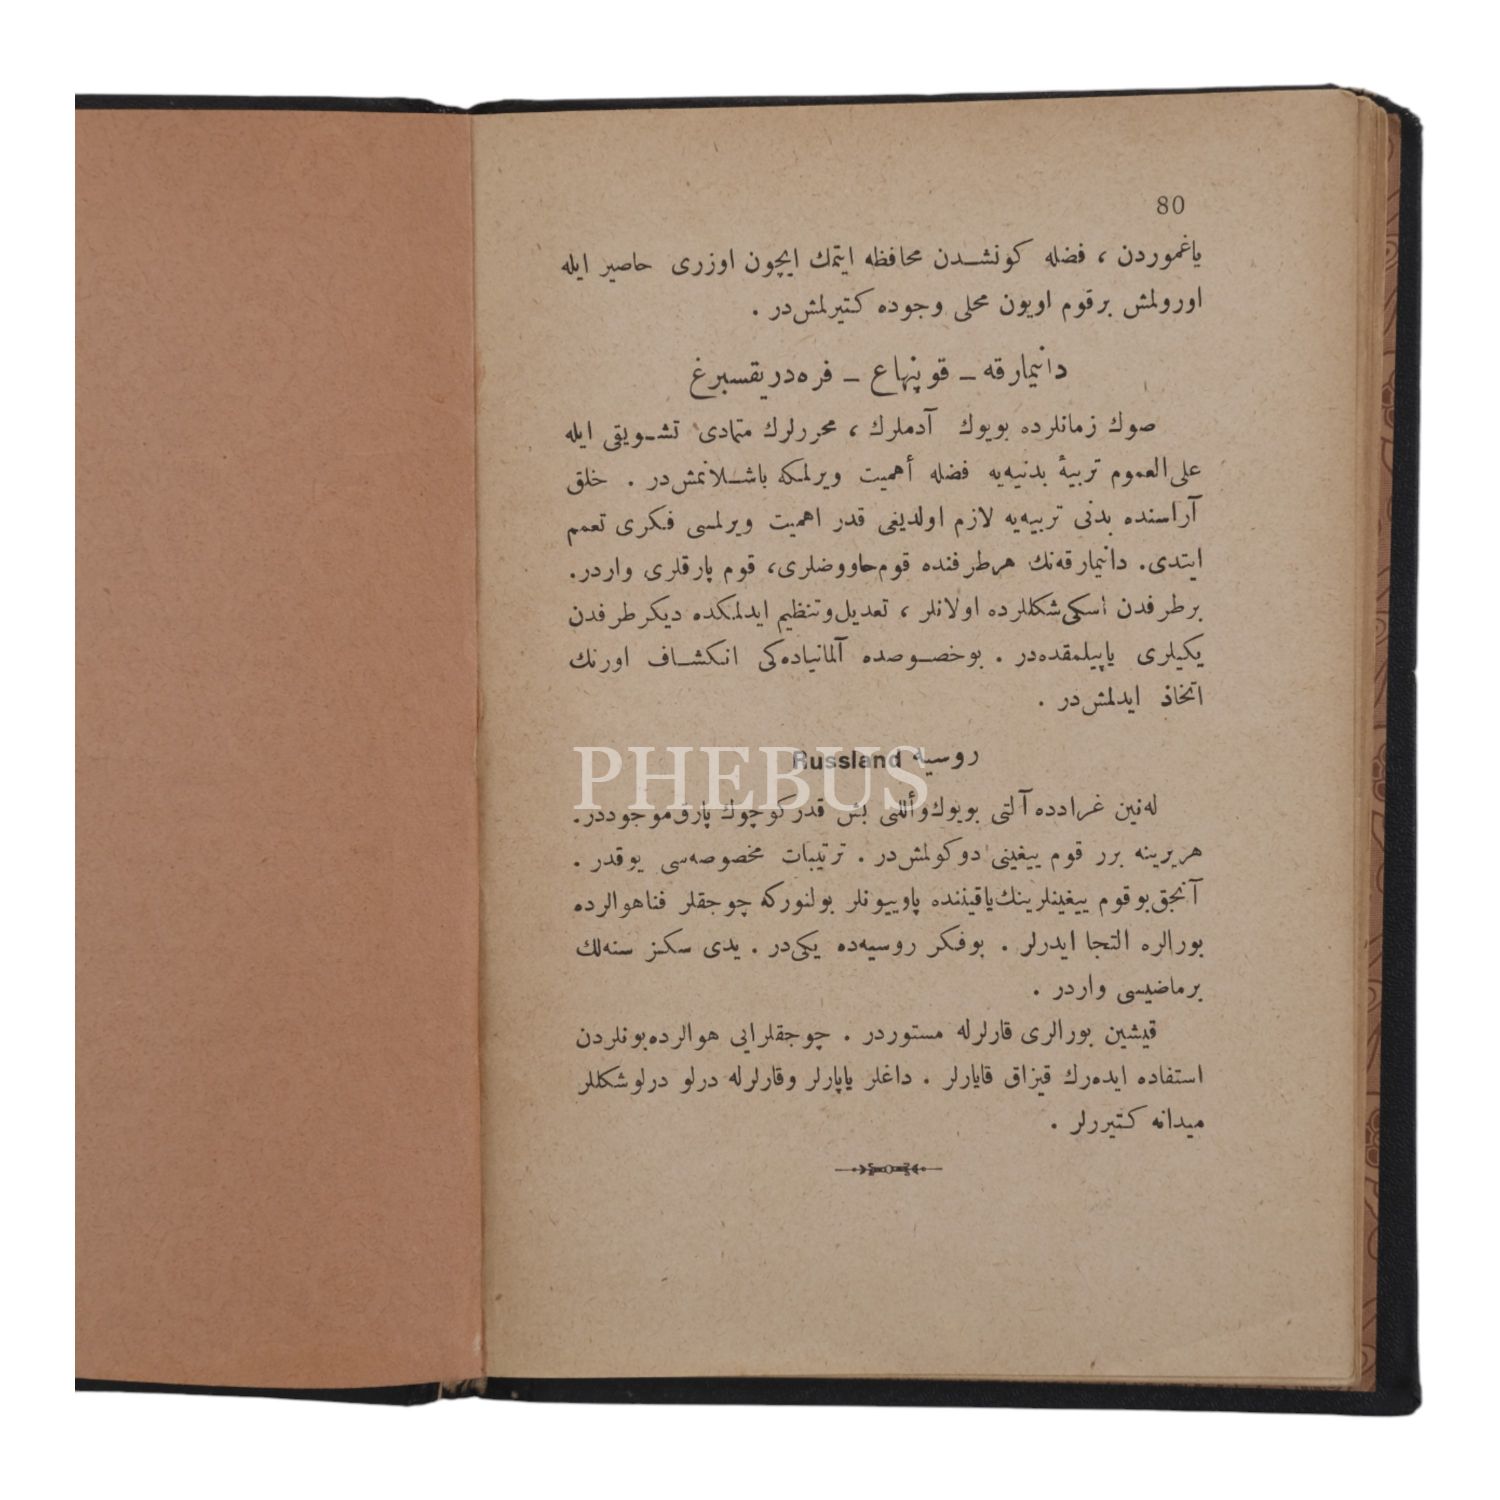 80
ياغموردن ، فضله كونشدن محافظه ايتمك ايچون اوزرى حاصير ايله
اورولمش برقوم اويون محلى وجوده كتيرلمش‌در .
دانيمارقه – قوپنهاغ – فره‌دريقسبرغ
صوك زمانلرده بويوك آدملرك ، محررلرك متمادى تشويقى ايله
على‌العموم تربيۀ بدنيه‌يه فضله أهميت ويرلمكه باشلانمش‌در . خلق
آراسنده بدنى تربيه‌يه لازم اولديغى قدر اهميت ويرلمسى فكرى تعمم
ايتدى. دانيمارقه‌نك هرطرفنده قوم‌حاووضلرى، قوم پارقلرى واردر.
برطرفدن اسكى‌شكللرده اولانلر ، تعديل‌وتنظيم ايدلمكده ديكرطرفدن
يكيلرى ياپيلمقده‌در . بوخصوصده آلمانياده‌كى انكشاف اورنك
اتخاذ ايدلمش‌در .
روسيه Russland
PHEBUS
له‌نين غرادده آلتى بويوك‌وأللى بش قدركوچوك پارق‌موجوددر.
هربرينه برر قوم ييغينى دوكولمش‌در . ترتيبات مخصوصه‌سى يوقدر .
آنجق‌بوقوم ييغينلرينك‌ياقيننده پاوييونلر بولنوركه چوجقلر فناهوالرده
بورالره التجا ايدرلر . بوفكر روسيه‌ده يكى‌در . يدى سكز سنه‌لك
برماضيسى واردر .
قيشين بورالرى قارلرله مستوردر . چوجقلرايى هوالرده‌بونلردن
استفاده ايده‌رك قيزاق قايارلر . داغلر ياپارلر وقارلرله درلو درلوشكللر
ميدانه كتيررلر .